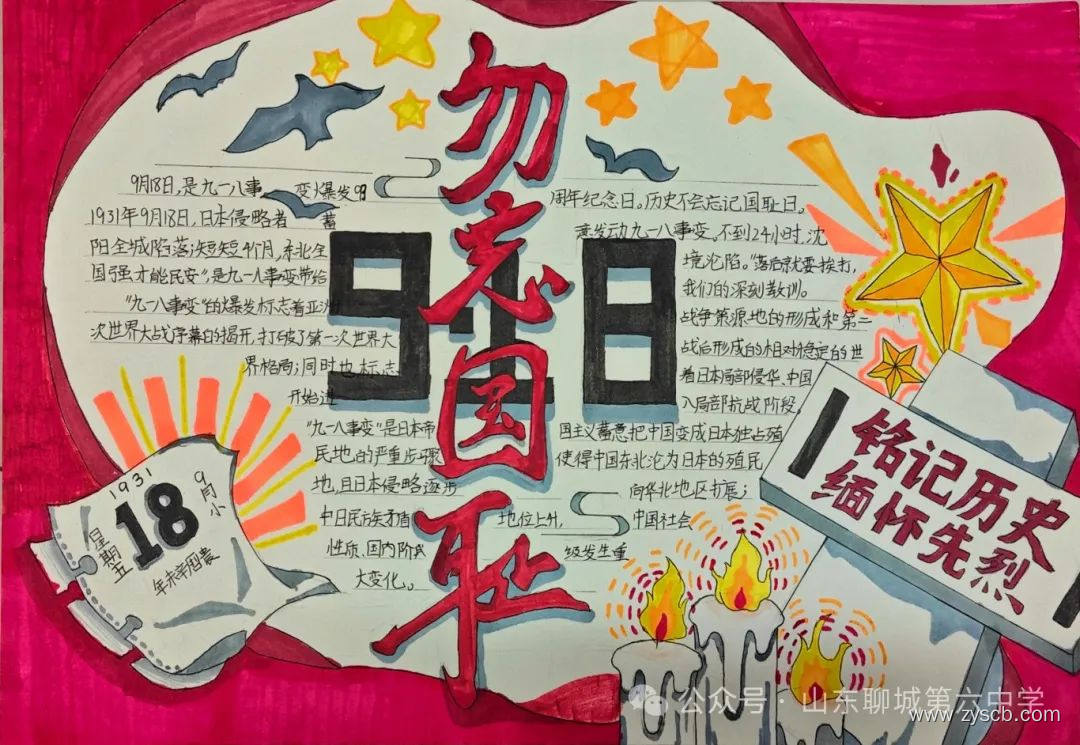 勿忘国耻
918
9月18日,是九一八事变爆发99周年纪念日。历史不会忘记国耻日。
1931年9月18日,日本侵略者蓄意发动九一八事变。不到24小时,沈
阳全城陷落;短短4个月,东北全境沦陷。"落后就要挨打,
国强才能民安",是九一八事变带给我们的深刻教训。
"九一八事变"的爆发标志着亚洲战争策源地的形成和第二
次世界大战序幕的揭开,打破了第一次世界大战后形成的相对稳定的世
界格局;同时也标志着日本局部侵华、中国
开始进入局部抗战阶段。
"九一八事变"是日本帝国主义蓄意把中国变成日本独占殖
民地的严重步骤使得中国东北沦为日本的殖民
地,且日本侵略逐步向华北地区扩展;
中日民族矛盾地位上升,中国社会
性质、国内阶级发生重
大变化。
1931
9月小
18
星期五
農曆辛未年
铭记历史
缅怀先烈
公众号·山东聊城第六中学
www.zyscb.com